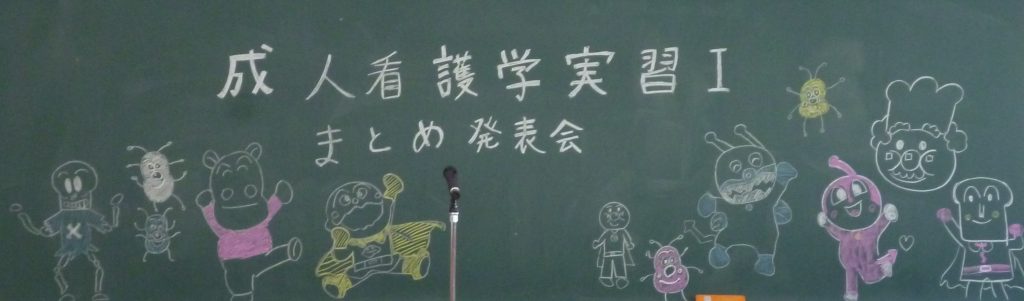 成人看護学実習Ⅰ
まとめ発表会